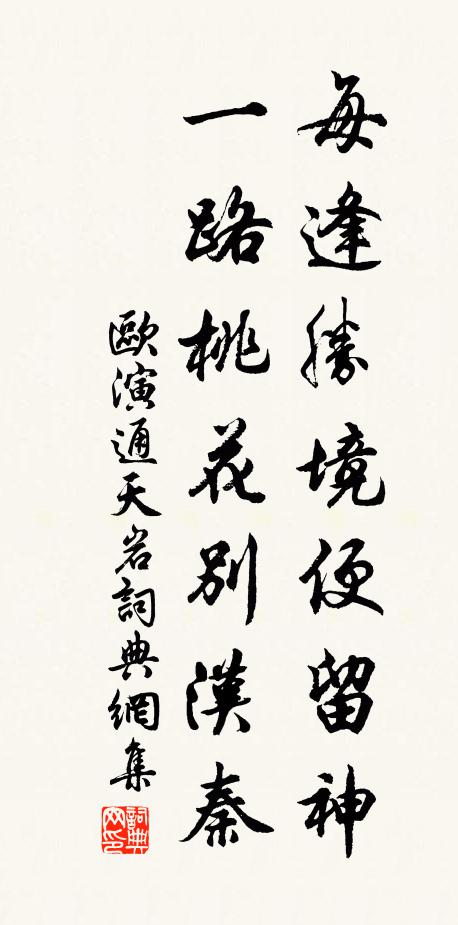 每逢勝境便留神
一路桃花別漢秦
歐演通天岩詞典網集
詞典網印